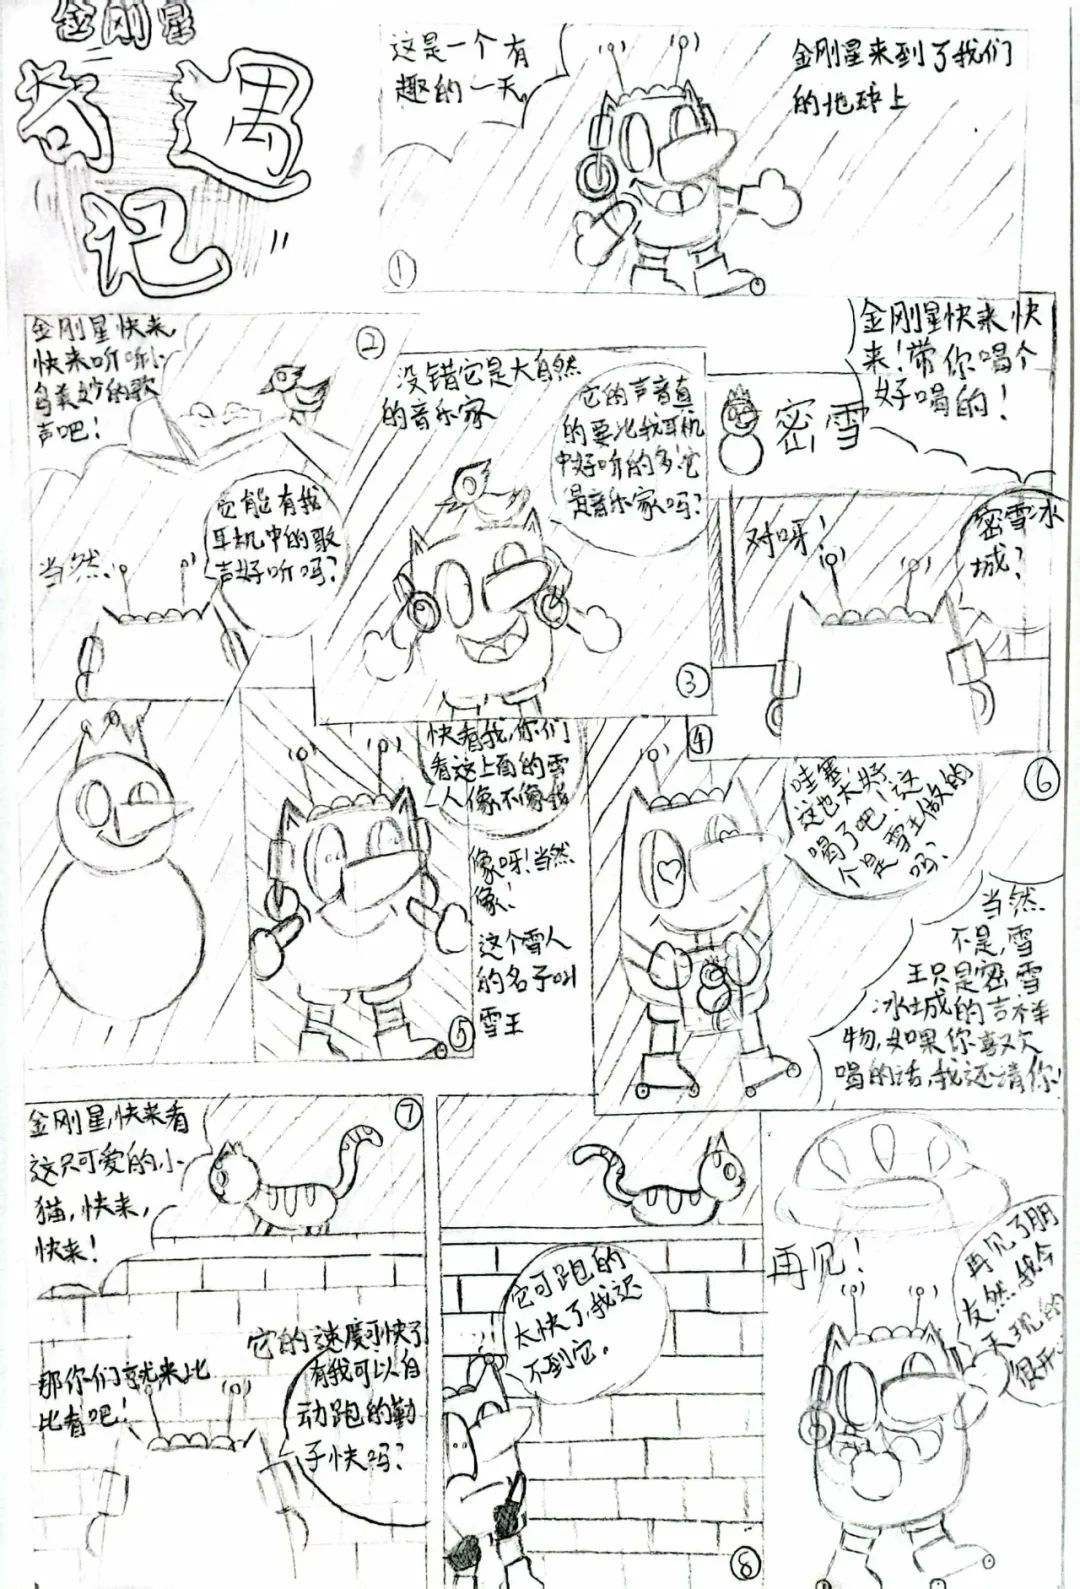 金刚星
奇遇
记
这是一个有
趣的一天
金刚星来到了我们
的地球上
①
金刚星快来
快来听听小
鸟美妙的歌
声吧！
②
它能有我
耳机中的歌
声好听吗？
当然
没错它是大自然
的音乐家
它的声音真
的要比我耳机
中好听的多它
是音乐家吗？
③
金刚星快来快
来！带你喝个
好喝的！
密雪
对呀！
密雪冰
城？
④
快看我，你们
看这上面的雪
人像不像我
像呀！当然
像！
这个雪人
的名子叫
雪王
⑤
⑥
哇塞
这也太好
喝了吧！这
个是雪王做的
吗？
当然
不是，雪
王只是密雪
冰城的吉祥
物，如果你喜欢
喝的话，我还请你！
金刚星，快来看
这只可爱的小
猫，快来，
快来！
⑦
它的速度可快了
有我可以自
动跑的勒
子快吗？
那你们就来比
比看吧！
它可跑的
太快了，我还
不到它。
⑧
再见！
再见了朋
友然我今
天玩的
很开